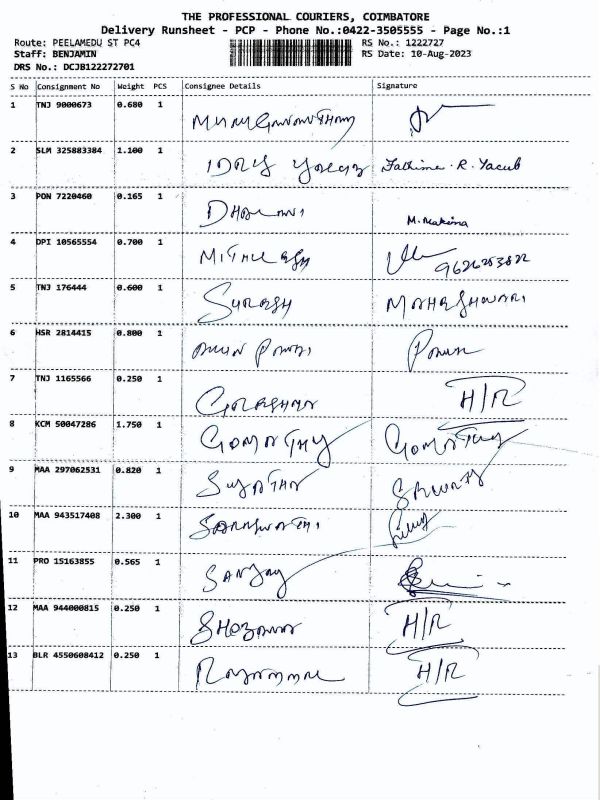 THE PROFESSIONAL COURIERS, COIMBATORE
Delivery Runsheet - PCP - Phone No.:0422-3505555 - Page No.:1
Route: PEELAMEDU ST PC4 RS No.: 1222727
Staff: BENJAMIN RS Date: 10-Aug-2023
DRS No.: DCJB122272701
S No Consignment No Weight PCS Consignee Details Signature
1 TNJ 9000673 0.680 1
2 SLM 325883384 1.100 1 Fathima. R. Yacub
3 PON 7220460 0.165 1 M. Makima
4 DPI 10565554 0.700 1 9626253822
5 TNJ 176444 0.600 1 SURESH MAHESHWARI
6 HSR 2814415 0.800 1
7 TNJ 1165566 0.250 1 H/R
8 KCM 50047286 1.750 1 GOMATHY GOMATHY
9 MAA 297062531 0.820 1 SUJATHA
10 MAA 943517408 2.300 1 SARASWATHI
11 PRO 15163855 0.565 1 SANJAY
12 MAA 944000815 0.250 1 SHOBANA H/R
13 BLR 4550608412 0.250 1 H/R